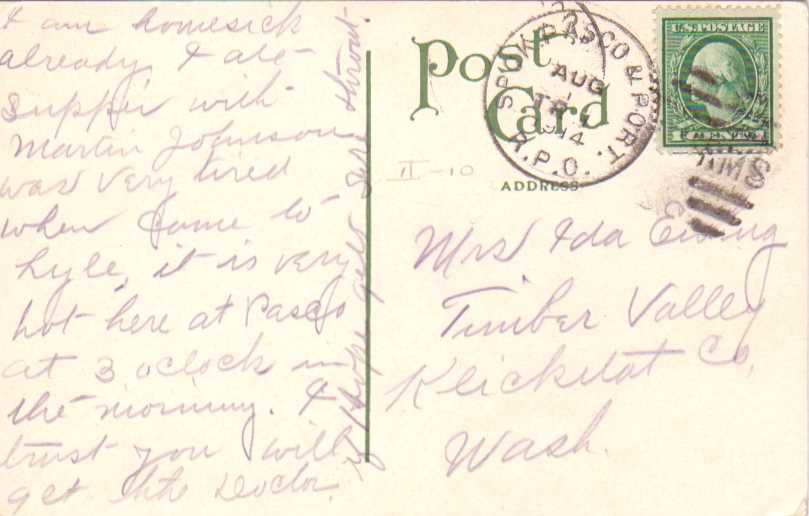 I am homesick
already I ate
supper with
Martin Johnson
was very tired
when came to
Lyle, it is very
hot here at Pasco
at 3 oclock in
the morning. I
trust you will
get the Doctor
if hope gets sore throat
Post
Card
ADDRESS
II-10
SPOK. PASCO & PORT.
AUG
1
TR
1914
R.P.O.
U.S. POSTAGE
RMS
Mrs Ida Ewing
Timber Valley
Klickitat Co,
Wash.